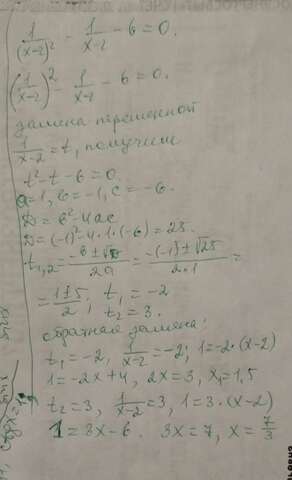 1/(x-2)² - 1/(x-2) - 6 = 0.
(1/(x-2))² - 1/(x-2) - 6 = 0.
замена переменной
1/(x-2) = t, получим
t² - t - 6 = 0.
a = 1, b = -1, c = -6.
D = b² - 4ac
D = (-1)² - 4·1·(-6) = 25.
t₁,₂ = (-b ± √D)/(2a) = (-(-1) ± √25)/(2·1) =
= (1 ± 5)/2; t₁ = -2
t₂ = 3.
обратная замена:
t₁ = -2, 1/(x-2) = -2; 1 = -2·(x-2)
1 = -2x + 4, 2x = 3, x₁ = 1,5
t₂ = 3, 1/(x-2) = 3; 1 = 3·(x-2)
1 = 3x - 6. 3x = 7, x = 7/3